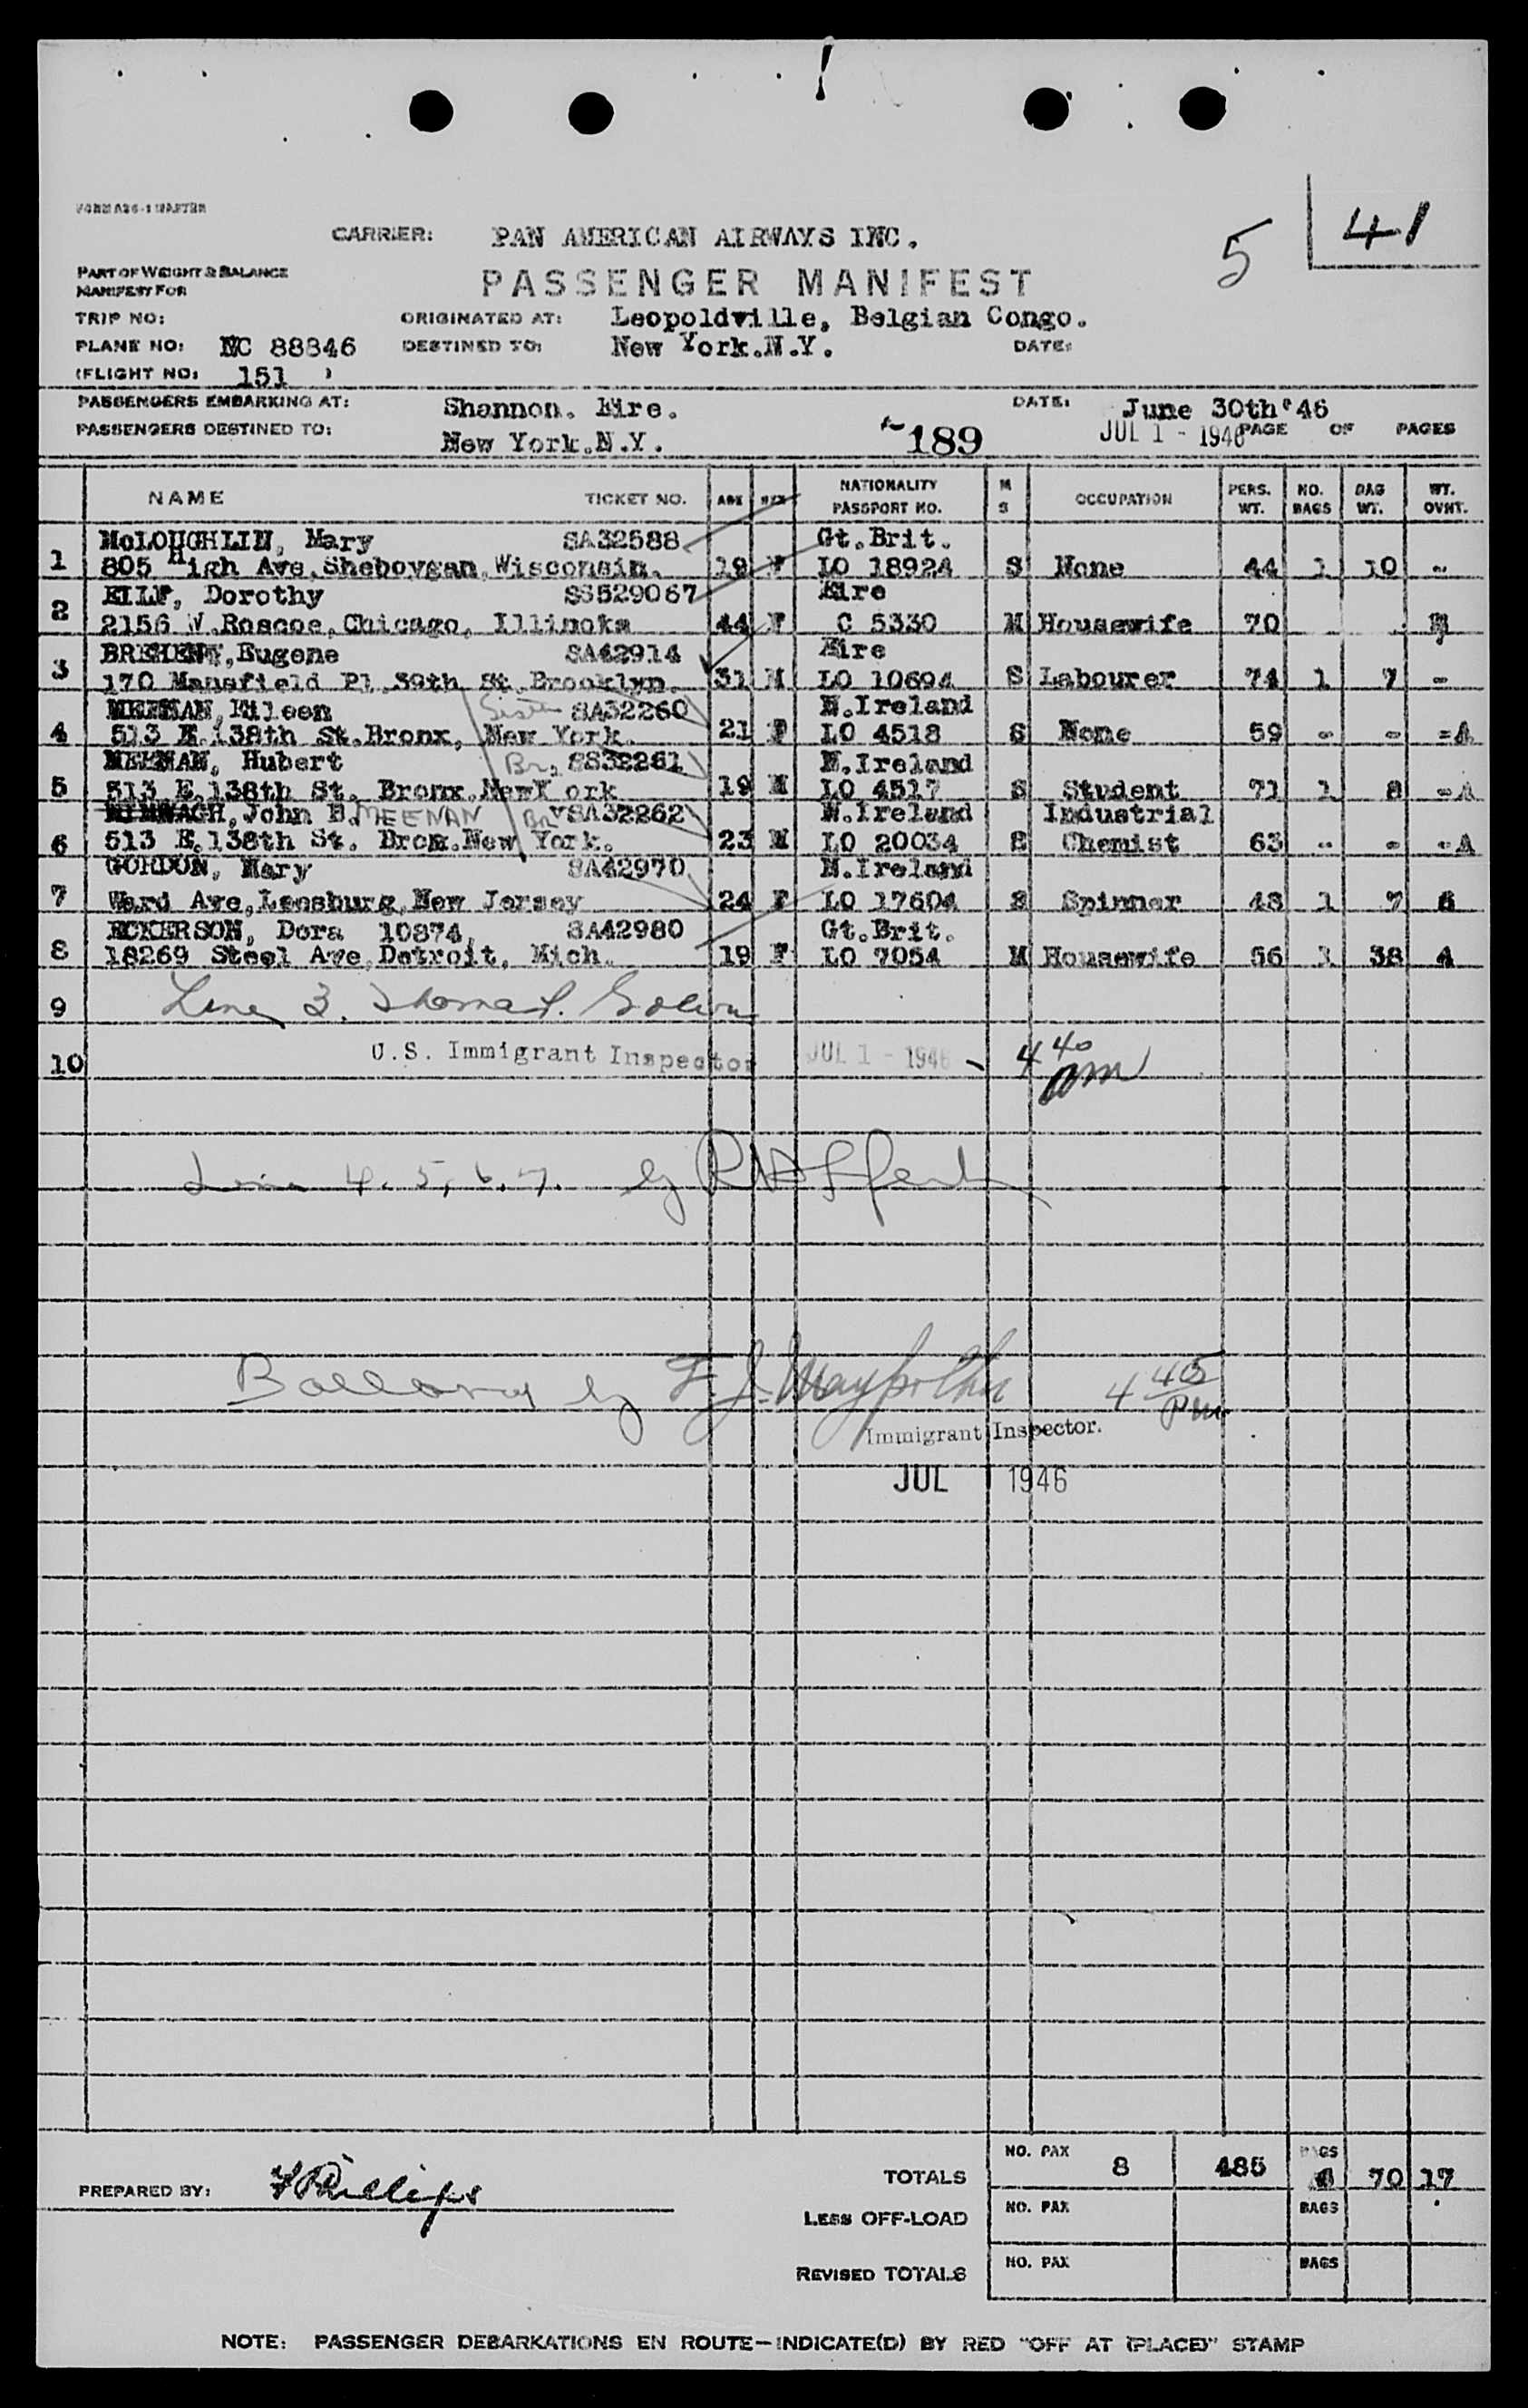 5 41
CARRIER: PAN AMERICAN AIRWAYS INC.
PART OF WEIGHT & BALANCE
MANIFEST FOR
PASSENGER MANIFEST
TRIP NO: ORIGINATED AT: Leopoldville, Belgian Congo.
PLANE NO: NC 88846 DESTINED TO: New York.N.Y. DATE:
(FLIGHT NO: 151 )
PASSENGERS EMBARKING AT: Shannon. Eire. DATE: June 30th'46
PASSENGERS DESTINED TO: New York.N.Y. 189 JUL 1 - 1946 PAGE OF PAGES
NAME TICKET NO. AGE SEX NATIONALITY PASSPORT NO. M S OCCUPATION PERS. WT. NO. BAGS BAG WT. WT. OVHT.
McLOUGHLIN, Mary SA32588 Gt.Brit.
1 805 High Ave.Sheboygan,Wisconsin. 19 F LO 18924 S None 44 1 10 -
Dorothy SS529067 Eire
2 2156 W.Roscoe,Chicago, Illinoks 44 F C 5330 M Housewife 70
BREHENY,Eugene SA42914 Eire
3 170 Mansfield Pl.39th St.Brooklyn. 31 M LO 10694 S Labourer 74 1 7 -
MEENAN,Eileen Sister SA32260 N.Ireland
4 513 E.138th St.Bronx, New York. 21 F LO 4518 S None 59 - - -A
MEENAN, Hubert Br. SS32261 N.Ireland
5 513 E.138th St. Bronx.NewY ork 19 M LO 4517 S Student 71 1 8 -A
John B. MEENAN Br SA32262 N.Ireland Industrial
6 513 E.138th St. Bronx.New York. 23 M LO 20034 S Chemist 63 - - -A
GORDON, Mary SA42970 N.Ireland
7 Ward Ave,Leesburg,New Jersey 24 F LO 17604 S Spinner 48 1 7 6
ECKERSON, Dora 10874, SA42980 Gt.Brit.
8 18269 Steel Ave,Detroit, Mich. 19 F LO 7054 M Housewife 56 3 38 4
9 Line 3.
10 U.S. Immigrant Inspector JUL 1 - 1946 - 4 40 am
Line 4. 5, 6. 7. by
by F.J. 4 45 pm
Immigrant Inspector.
JUL 1 1946
PREPARED BY: Phillips
TOTALS NO. PAX 8 485 BAGS 70 17
LESS OFF-LOAD NO. PAX BAGS
REVISED TOTALS NO. PAX BAGS
NOTE: PASSENGER DEBARKATIONS EN ROUTE—INDICATE(D) BY RED "OFF AT (PLACE)" STAMP